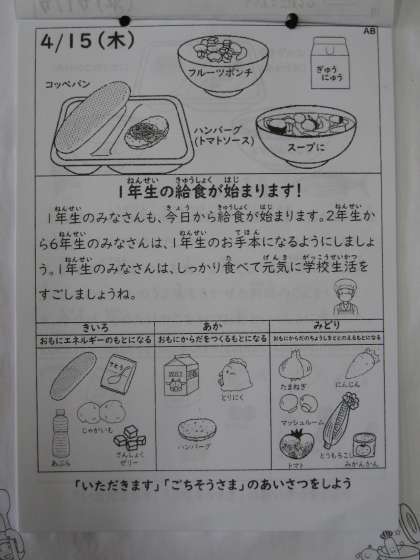 4/15(木)
AB
コッペパン
フルーツポンチ
ぎゅう
にゅう
ハンバーグ
(トマトソース)
スープに
ねんせい きゅうしょく はじ
1年生の給食が始まります!
ねんせい きょう きゅうしょく はじ ねんせい
1年生のみなさんも、今日から給食が始まります。2年生か
ねんせい ねんせい てほん
ら6年生のみなさんは、1年生のお手本になるようにしましょ
ねんせい た げんき がっこうせいかつ
う。1年生のみなさんは、しっかり食べて元気に学校生活を
すごしましょうね。
きいろ あか みどり
おもにエネルギーのもとになる おもにからだをつくるもとになる おもにからだのちょうしをととのえるもとになる
さとう
じゃがいも
あぶら
さんしょく
ゼリー
とりにく
ハンバーグ
たまねぎ
にんじん
マッシュルーム
とうもろこし
トマト
みかんかん
「いただきます」「ごちそうさま」のあいさつをしよう